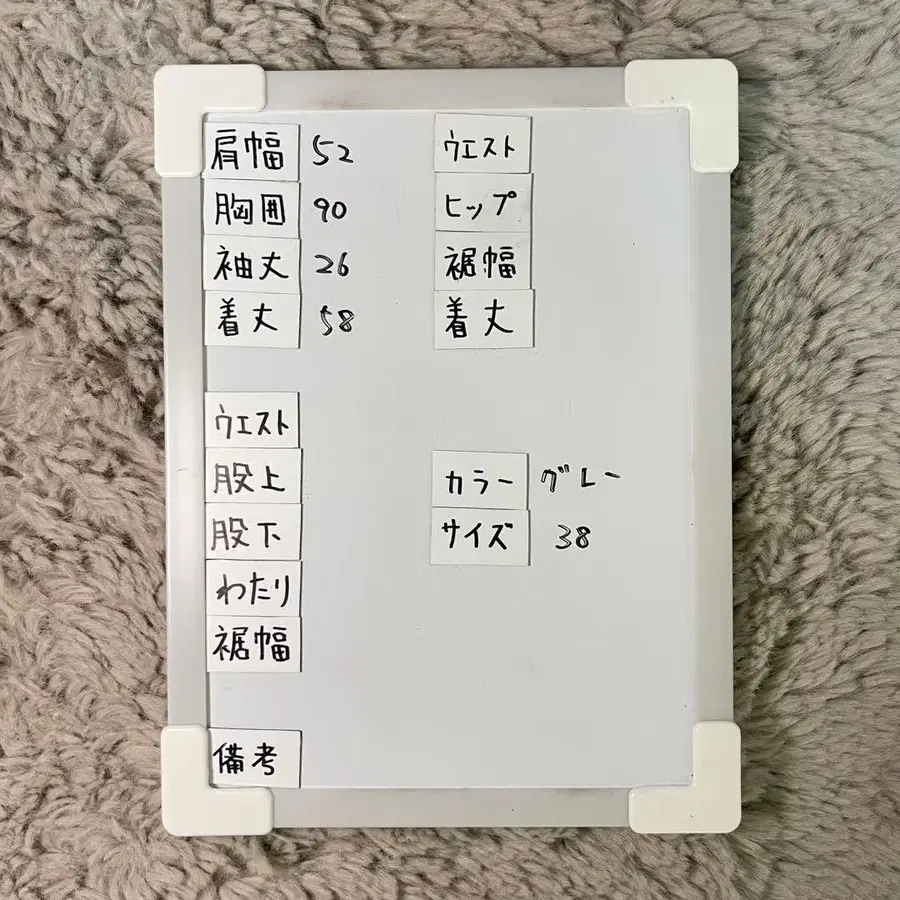 肩幅 52
胸囲 90
袖丈 26
着丈 58
ウエスト
ヒップ
裾幅
着丈
ウエスト
股上
股下
わたり
裾幅
カラー グレー
サイズ 38
備考